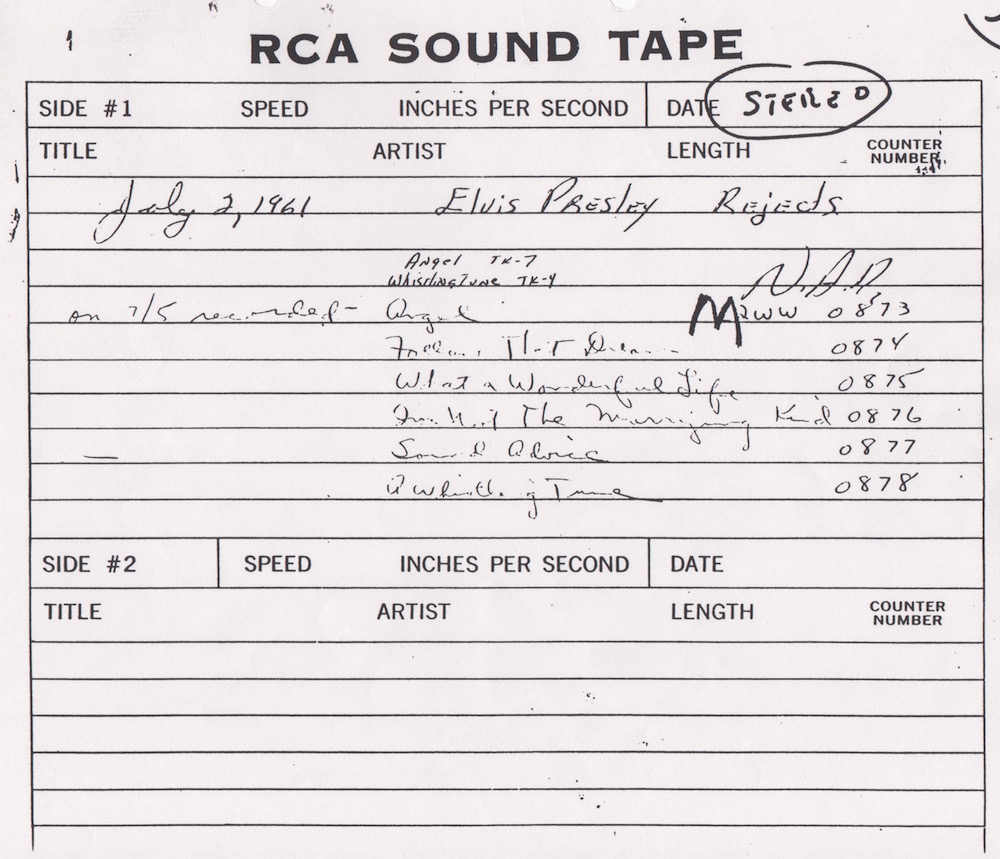 1
RCA SOUND TAPE
SIDE #1 SPEED INCHES PER SECOND DATE STEREO
TITLE ARTIST LENGTH COUNTER NUMBER
July 2, 1961 Elvis Presley Rejects
Angel TK-7
Whistling Tune TK-4
on 7/5 recorded- Angel M2WW 0873
Follow That Dream 0874
What a Wonderful Life 0875
The Marrying Kind 0876
— Sound Advice 0877
A Whistling Tune 0878
SIDE #2 SPEED INCHES PER SECOND DATE
TITLE ARTIST LENGTH COUNTER NUMBER